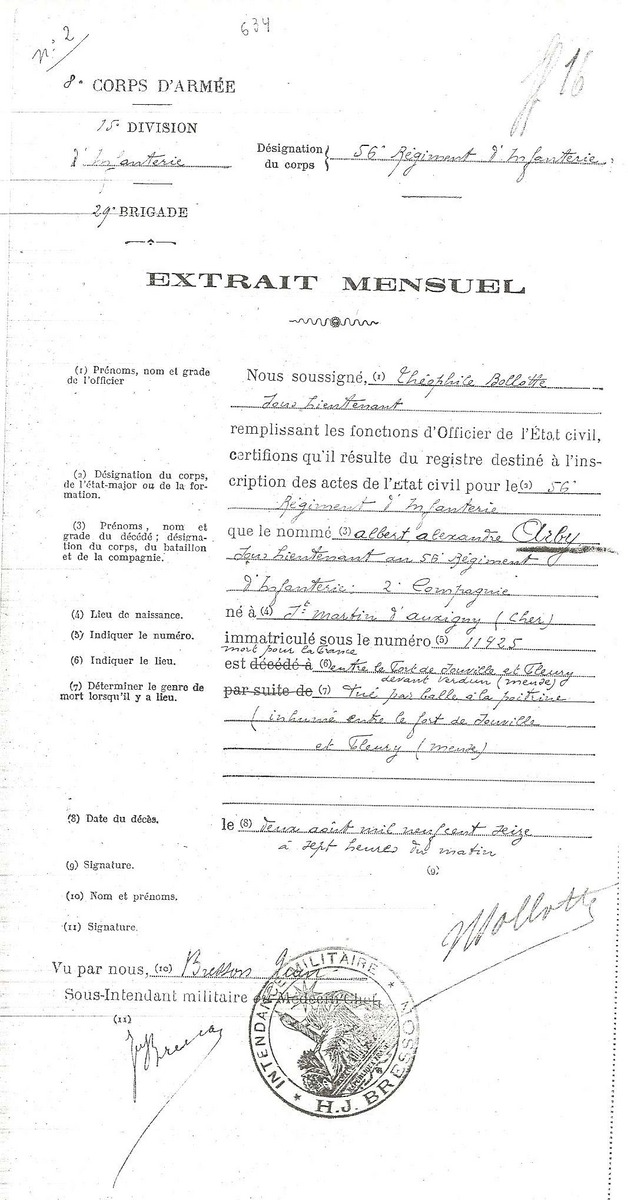 n: 2
634
16
8e CORPS D'ARMÉE
15e DIVISION
d'Infanterie
Désignation du corps { 56e Régiment d'Infanterie
29e BRIGADE
EXTRAIT MENSUEL
(1) Prénoms, nom et grade
de l'officier
Nous soussigné, (1) Théophile Bollotte
Sous Lieutenant
remplissant les fonctions d'Officier de l'État civil,
certifions qu'il résulte du registre destiné à l'ins-
(2) Désignation du corps,
de l'état-major ou de la for-
mation.
cription des actes de l'Etat civil pour le (2) 56e
Régiment d'Infanterie
(3) Prénoms, nom et
grade du décédé; désigna-
tion du corps, du bataillon
et de la compagnie.
que le nommé (3) albert, alexandre Arby
Sous Lieutenant au 56e Régiment
d'Infanterie; 2e Compagnie
(4) Lieu de naissance.
né à (4) St Martin d'auxigny (Cher)
(5) Indiquer le numéro.
immatriculé sous le numéro (5) 11425
mort pour la France
(6) Indiquer le lieu.
est décédé à (6) entre le Fort de Souville et Fleury
devant Verdun (meuse)
(7) Déterminer le genre de
mort lorsqu'il y a lieu.
par suite de (7) Tué par balle à la poitrine
(inhumé entre le fort de Souville
et Fleury (meuse)
(8) Date du décès.
le (8) deux août mil neuf cent seize
à sept heures du matin
(9) Signature.
(9)
(10) Nom et prénoms.
(11) Signature.
Bollotte
Vu par nous, (10) Bresson Jean
Sous-Intendant militaire ou Médecin Chef
(11)
INTENDANCE MILITAIRE * H.J. BRESSON *